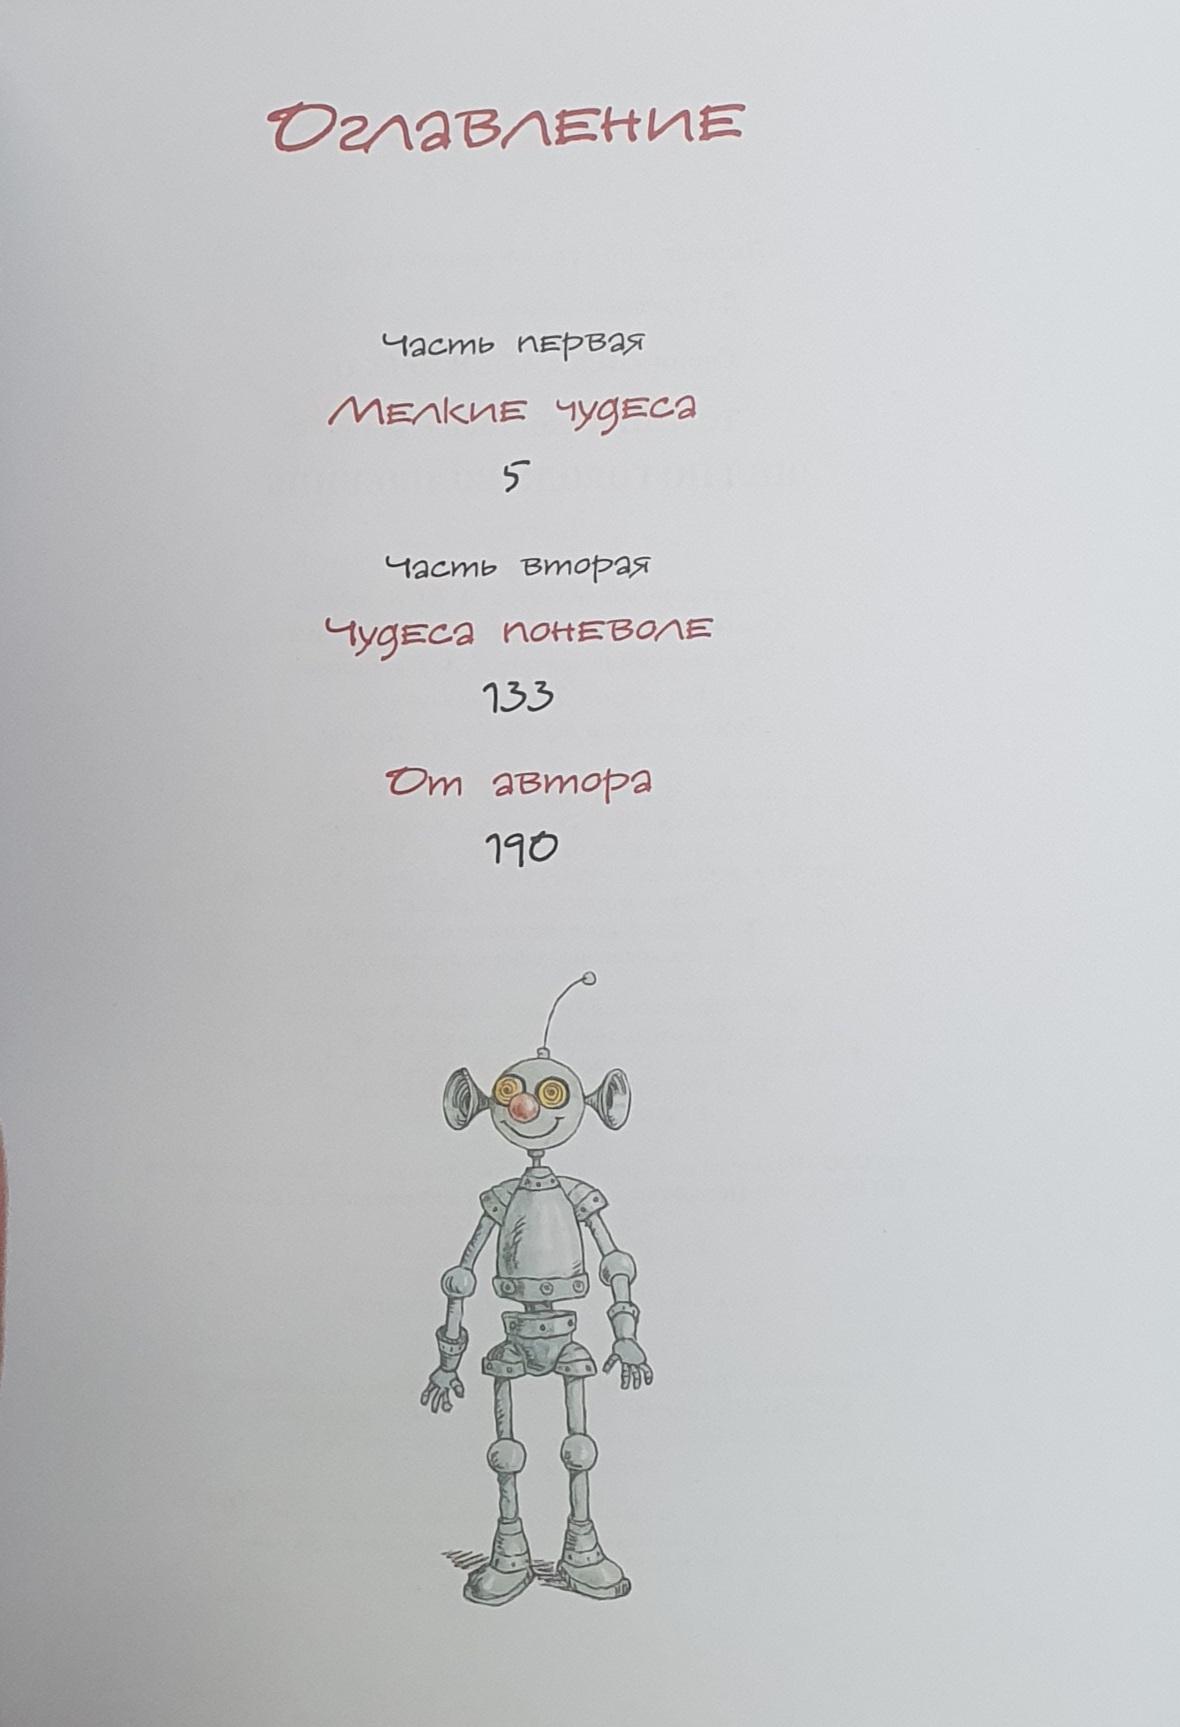 Оглавление
Часть первая
Мелкие чудеса
5
Часть вторая
Чудеса поневоле
133
От автора
190